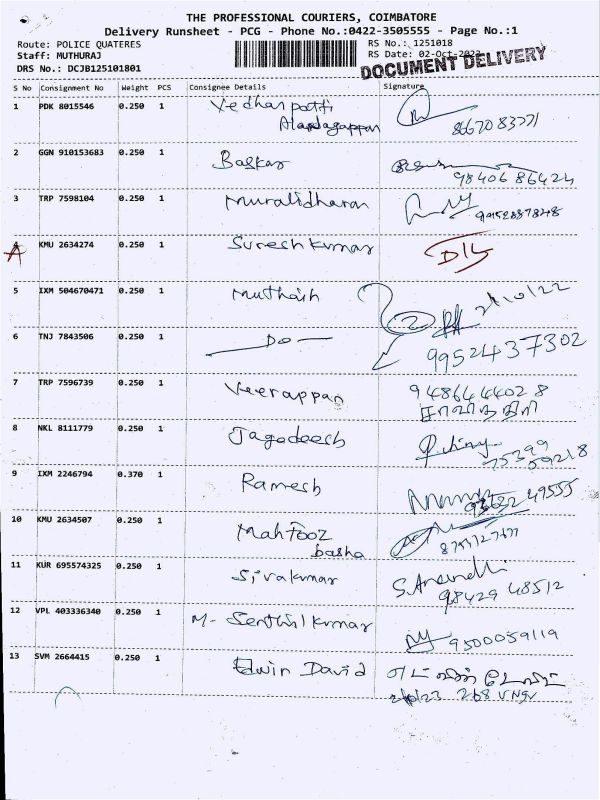 THE PROFESSIONAL COURIERS, COIMBATORE
Delivery Runsheet - PCG - Phone No.:0422-3505555 - Page No.:1
Route: POLICE QUATERES RS No.: 1251018
Staff: MUTHURAJ RS Date: 02-Oct-2023
DRS No.: DCJB125101801 DOCUMENT DELIVERY
S No Consignment No Weight PCS Consignee Details Signature
1 PDK 8015546 0.250 1 Vedhanpatti
Alardagappan 8667083771
2 GGN 910153683 0.250 1 Baskar
98406 86424
3 TRP 7598104 0.250 1 Muralidharan
4 KMU 2634274 0.250 1 Sureshkumar
5 IXM 504670471 0.250 1 Muthaih 2/10/22
6 TNJ 7843506 0.250 1 — Do — 9952437302
7 TRP 7596739 0.250 1 Veerappan 9486444028
8 NKL 8111779 0.250 1 Jagadeesh
75399
59218
9 IXM 2246794 0.370 1 Ramesh
10 KMU 2634507 0.250 1 Mahfooz
basha
11 KUR 695574325 0.250 1 Sivakumar
98429 48512
12 VPL 403336340 0.250 1 M- Senthilkumar 9500059119
13 SVM 2664415 0.250 1 Edwin David